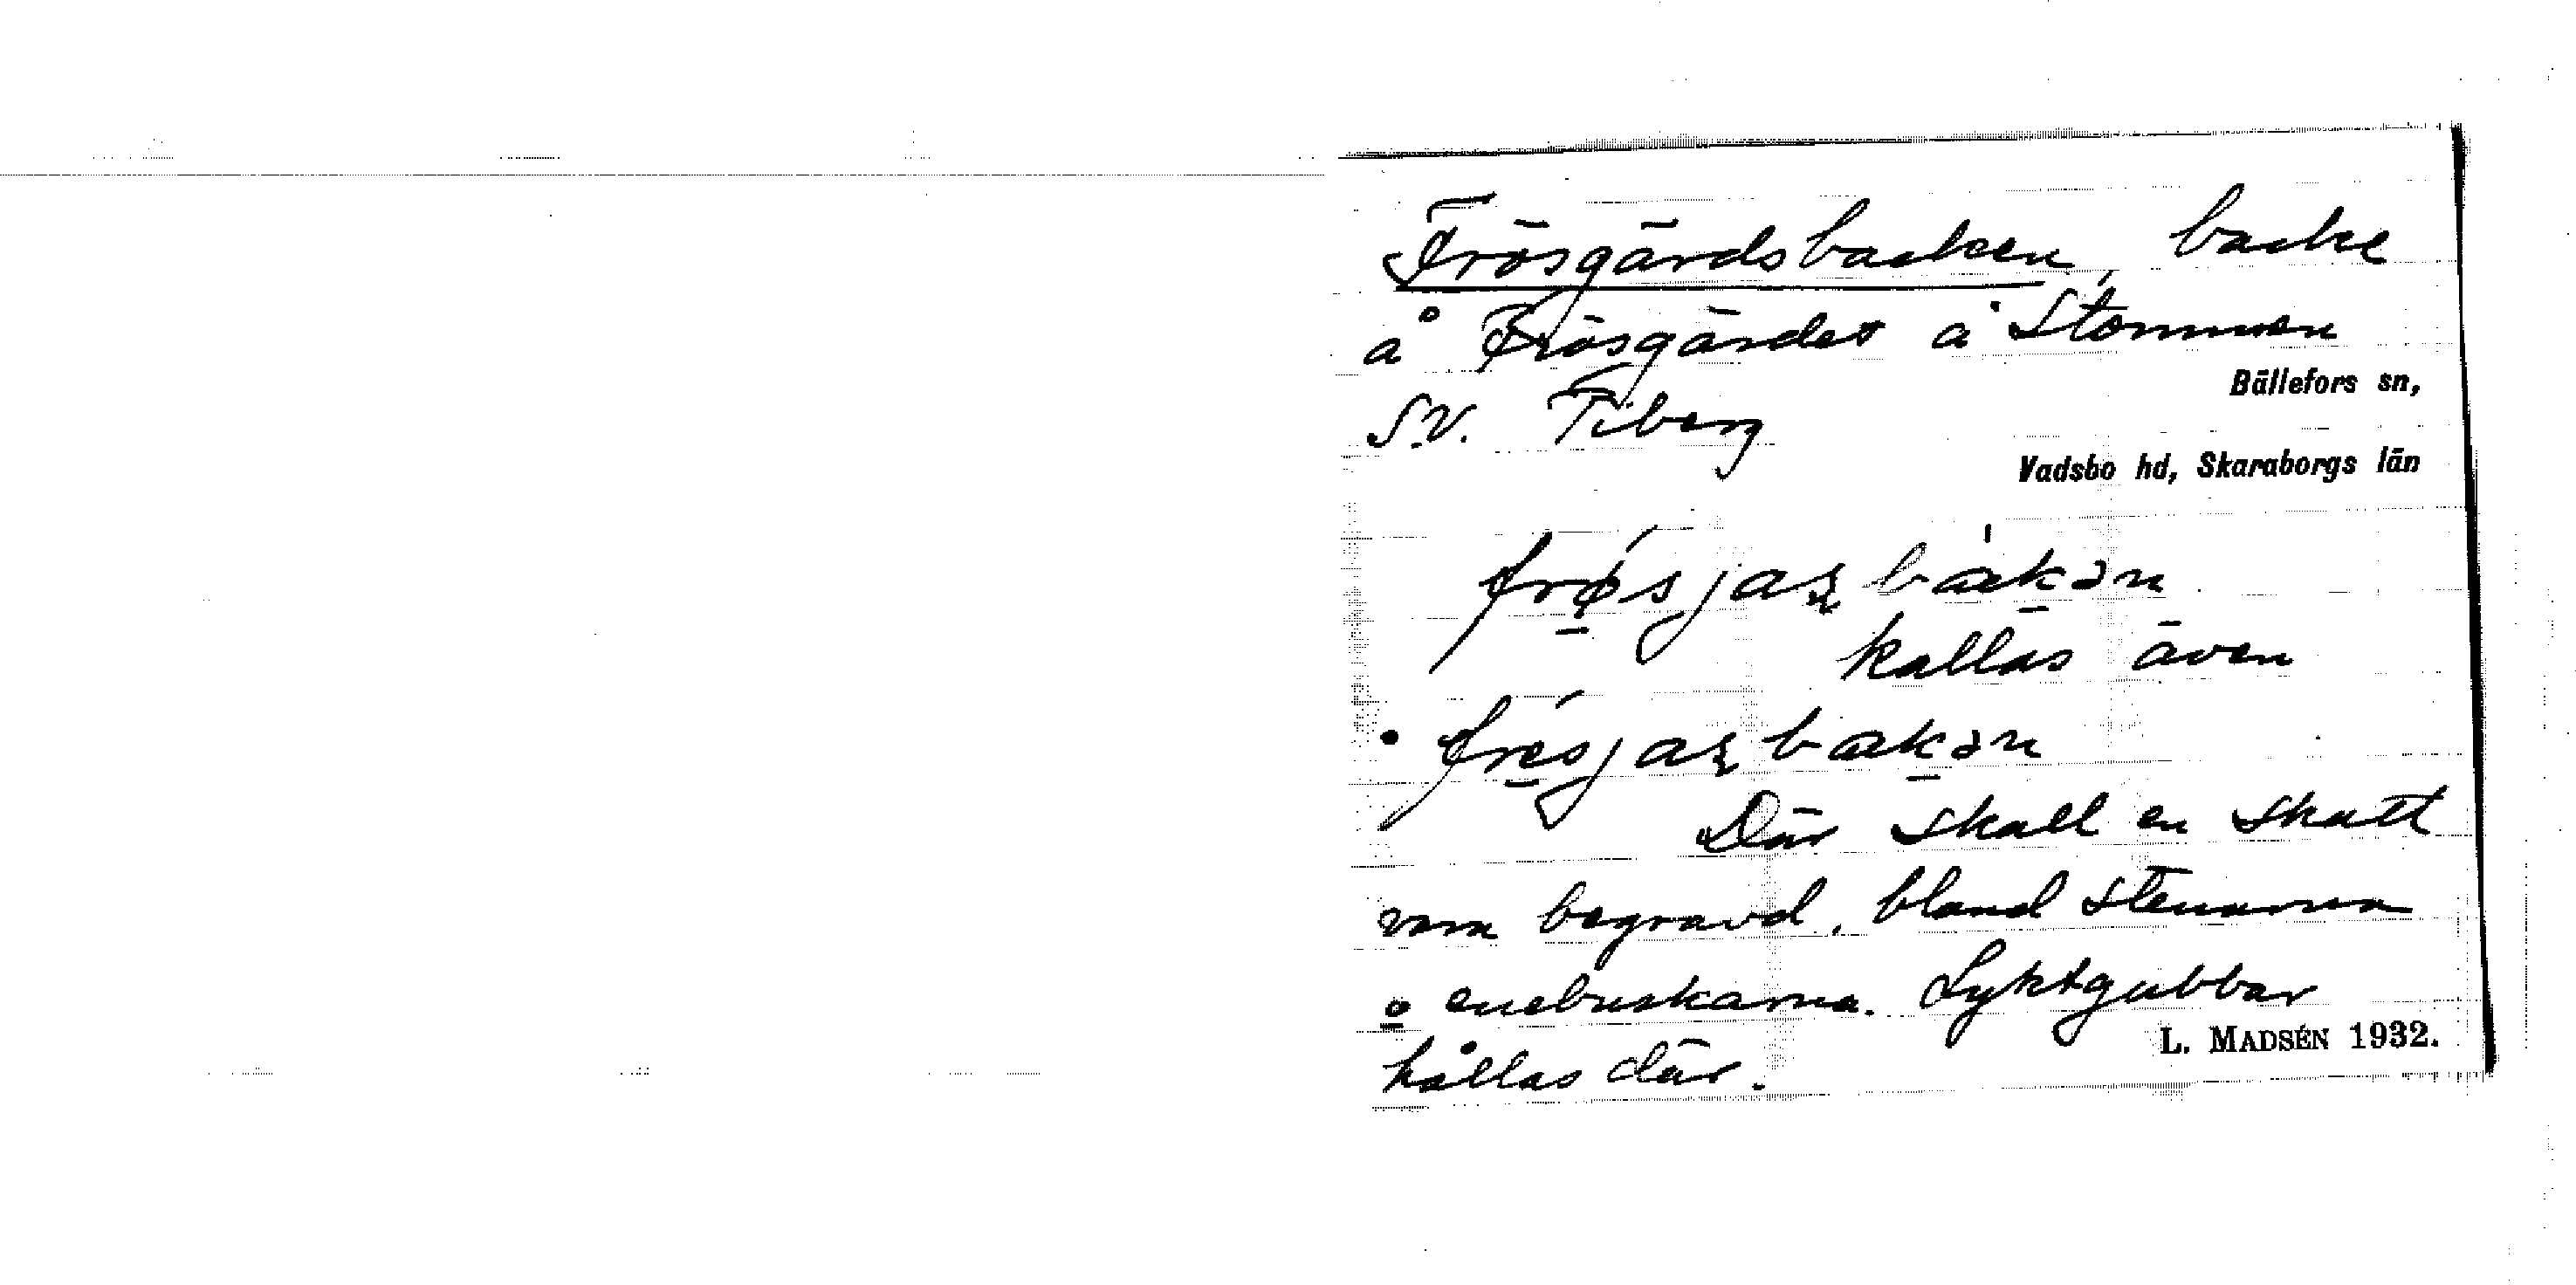 Frösgärdsbacken, backe
å Frösgärdet å Stommen
S.V. Fiberg
Bällefors sn,
Vadsbo hd, Skaraborgs län
kallas även
Där skall en skatt
vara begravd, bland stenarna
o enebuskarna. Lyktgubbar
hållas där.
L. MADSÉN 1932.